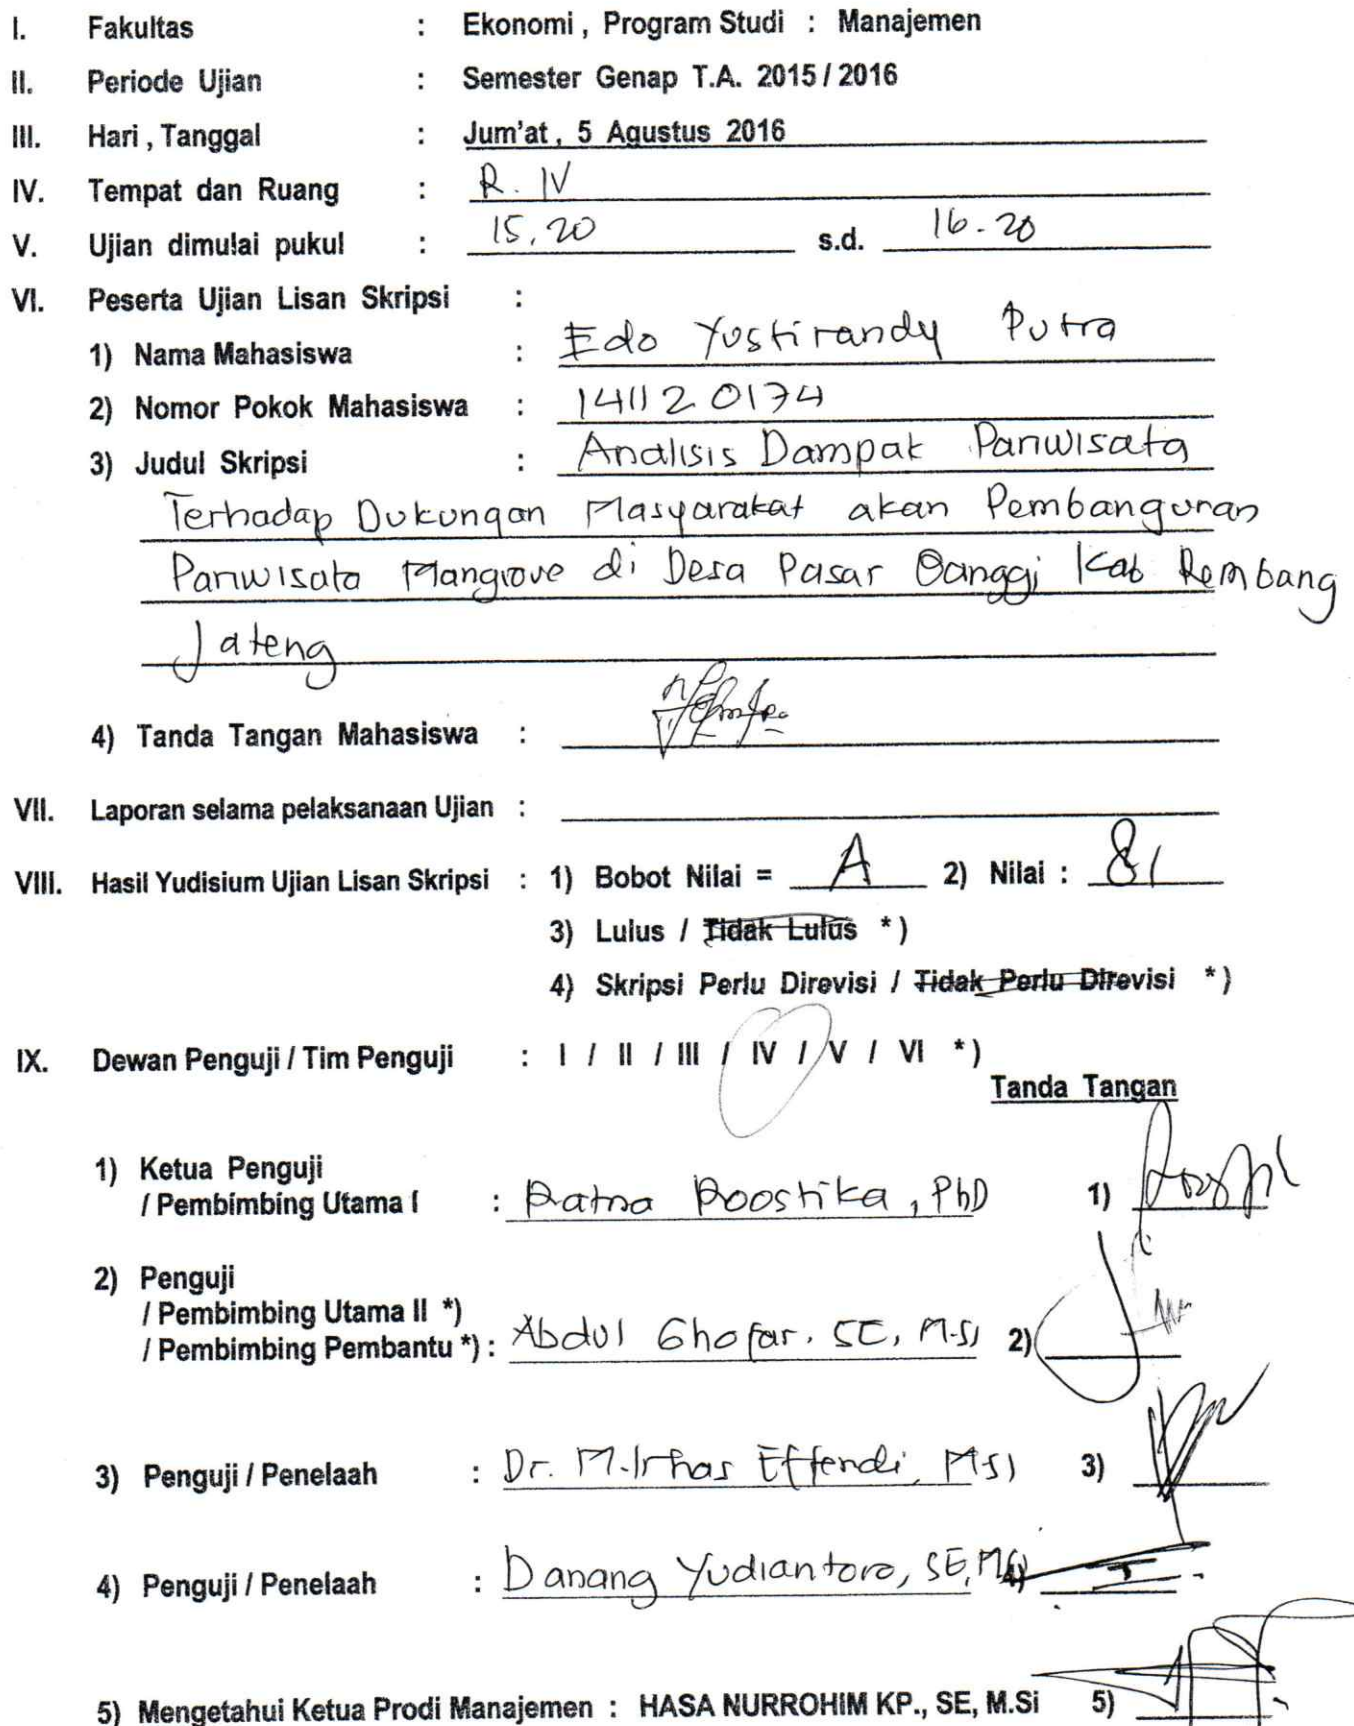 I. Fakultas : Ekonomi , Program Studi : Manajemen
II. Periode Ujian : Semester Genap T.A. 2015 / 2016
III. Hari , Tanggal : Jum'at , 5 Agustus 2016
IV. Tempat dan Ruang : R. IV
V. Ujian dimulai pukul : 15.20 s.d. 16.20
VI. Peserta Ujian Lisan Skripsi :
1) Nama Mahasiswa : Edo Yustirandy Putra
2) Nomor Pokok Mahasiswa : 141120174
3) Judul Skripsi : Analisis Dampak Pariwisata
Terhadap Dukungan Masyarakat akan Pembangunan
Pariwisata Mangrove di Desa Pasar Banggi Kab Rembang
Jateng
4) Tanda Tangan Mahasiswa :
VII. Laporan selama pelaksanaan Ujian :
VIII. Hasil Yudisium Ujian Lisan Skripsi : 1) Bobot Nilai = A 2) Nilai : 81
3) Lulus / Tidak Lulus *)
4) Skripsi Perlu Direvisi / Tidak Perlu Direvisi *)
IX. Dewan Penguji / Tim Penguji : I / II / III / IV / V / VI *)
Tanda Tangan
1) Ketua Penguji
/ Pembimbing Utama I : Ratna Roostika, PhD 1)
2) Penguji
/ Pembimbing Utama II *)
/ Pembimbing Pembantu *) : Abdul Ghofar. SE, M.Si 2)
3) Penguji / Penelaah : Dr. M. Irhas Effendi, MSi 3)
4) Penguji / Penelaah : Danang Yudiantoro, SE, MSi 4)
5) Mengetahui Ketua Prodi Manajemen : HASA NURROHIM KP., SE, M.Si 5)